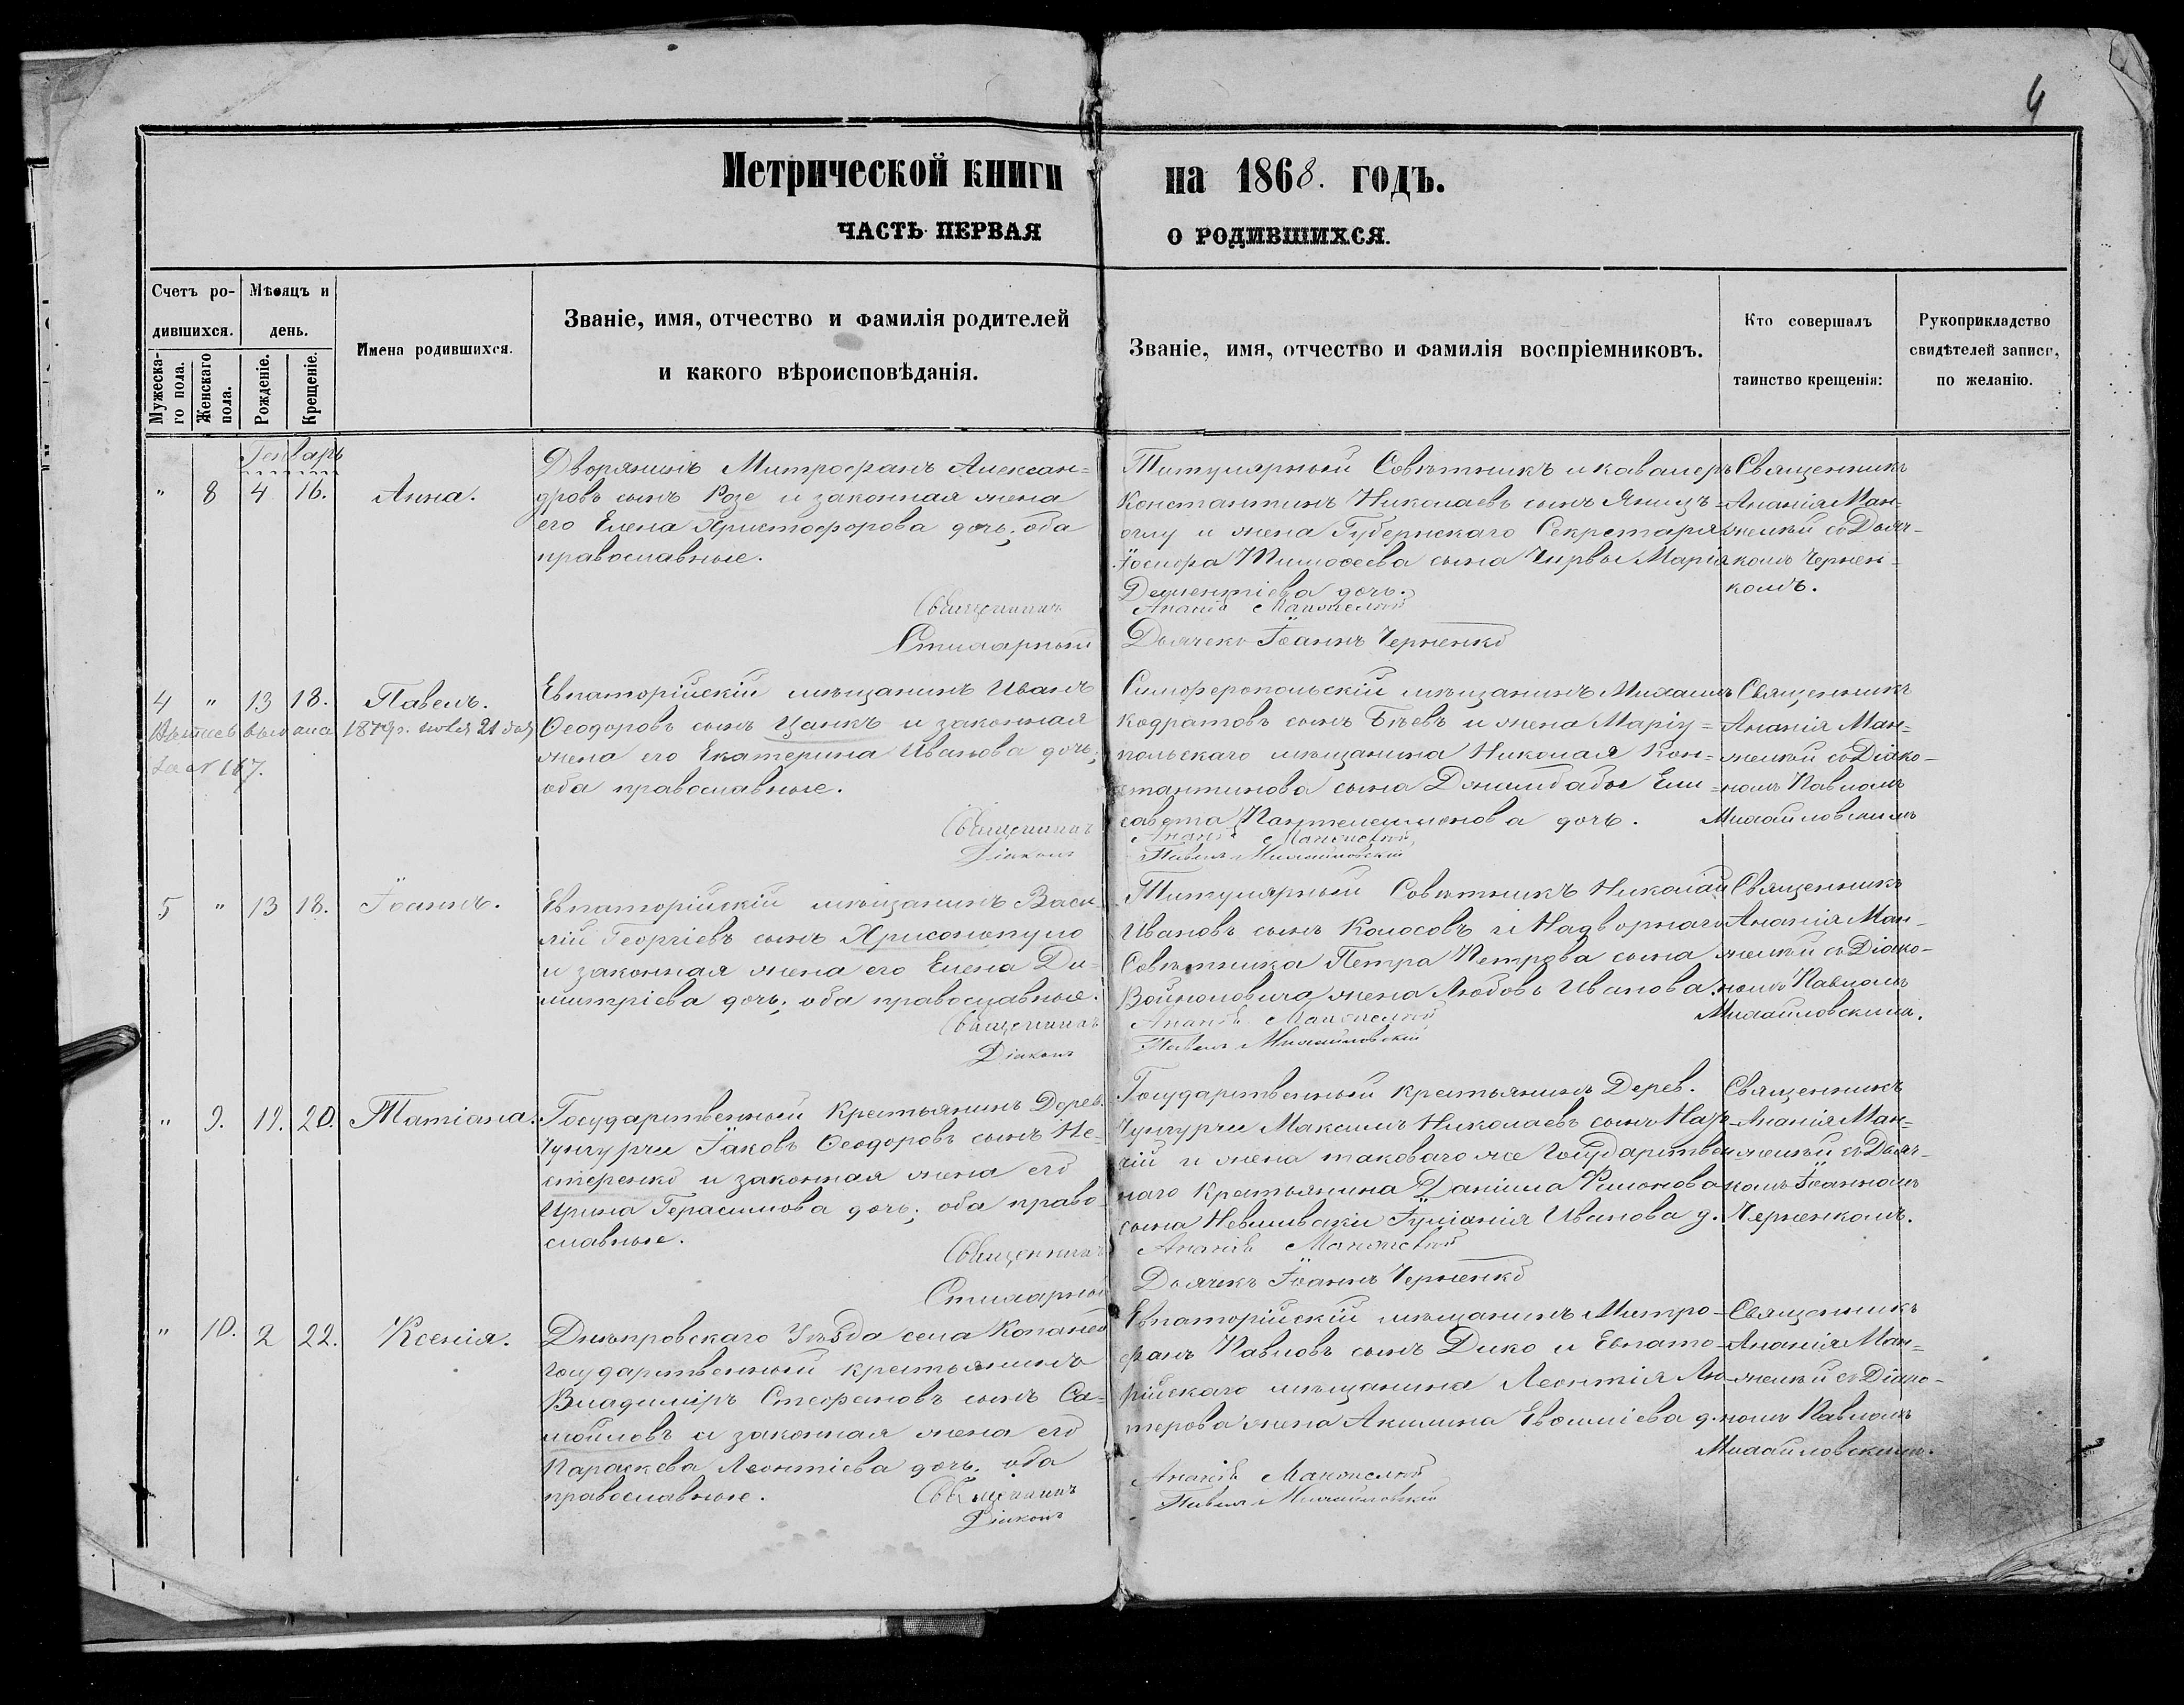 4
Метрической книги на 1868. годъ.
ЧАСТЬ ПЕРВАЯ О РОДИВШИХСЯ.
Счетъ ро-
дившихся.
Мѣсяцъ и
день.
Мужеска-
го пола.
Женскаго
пола.
Рожденіе.
Крещеніе.
Имена родившихся.
Званіе, имя, отчество и фамилія родителей
и какого вѣроисповѣданія.
Званіе, имя, отчество и фамилія воспріемниковъ.
Кто совершалъ
таинство крещенія:
Рукоприкладство
свидѣтелей записи,
по желанію.
Генварь
" 8 4 16. Анна.
Дворянинъ Митрофанъ Алексан=
дровъ сынъ Розе и законная жена
его Елена Христофорова дочь; оба
православные.
Титулярный Совѣтникъ и кавалеръ
Константинъ Николаевъ сынъ
оглу и жена Губернскаго Секретаря
Іосифа Тимоѳеева сына Чирвы Марія
Дементіева дочь.
Священникъ
Ананія Ман-
желѣй съ Дьяч-
комъ Чернен-
комъ.
Священникъ Ананія Манжелей
Стихарный Дьячекъ Іоаннъ Черненко
4 " 13 18. Павелъ.
1879г. 21 дня
за № 167.
Евпаторійскій мѣщанинъ Иванъ
Ѳеодоровъ сынъ Цанкъ и законная
жена его Екатерина Иванова дочь;
оба православные.
Симферопольскій мѣщанинъ Михаилъ
Кодратовъ сынъ Бѣевъ и жена Маріу=
польскаго мѣщанина Николая Кон=
стантинова сына Джамбабы Ели=
савета Пантелеимонова дочь.
Священникъ
Ананія Ман=
желѣй съ Діако-
номъ Павломъ
Михайловскимъ
Священникъ Ананія Манжелей
Діаконъ Павелъ Михайловскій
5 " 13 18. Іоаннъ.
Евпаторійскій мѣщанинъ Васи
лій Георгіевъ сынъ Хрисопопуло
и законная жена его Елена Ди-
митріева дочь; оба православные.
Титулярный Совѣтникъ Николай
Ивановъ сынъ Колосовъ и Надворнаго
Совѣтника Петра Петрова сына
Войноловича жена Любовь Иванова.
Священникъ
Ананія Ман-
желѣй съ Діако-
номъ Павломъ
Михайловскимъ.
Священникъ Ананія Манжелей
Діаконъ Павелъ Михайловскій
" 9. 11. 20. Татіана.
Государственный крестьянинъ Дерев.
Чунгурчи Іаковъ Ѳеодоровъ сынъ Не-
стеренко и законная жена его
Ирина Герасимова дочь; оба право-
славные.
Государственный крестьянинъ Дерев.
Чунгурчи Максимъ Николаевъ сынъ
и жена таковаго же Государствен
наго крестьянина Даніила Филонова
сына Іуліанія Иванова д.
Священникъ
Ананія Ман=
желѣй съ Дьяч-
комъ Іоанномъ
Черненкомъ.
Священникъ Ананія Манжелей
Стихарный Дьячекъ Іоаннъ Черненко
" 10. 2 22. Ксенія.
Днѣпровскаго Уѣзда села Копаней
государственный крестьянинъ
Владиміръ Стефановъ сынъ Са=
мойловъ и законная жена его
Параскева Леонтіева дочь; оба
православные.
Евпаторійскій мѣщанинъ Митро-
фанъ Павловъ сынъ Дико и Евпато-
рійскаго мѣщанина Леонтія Лю-
терова жена Акилина Евѳиміева д.
Священникъ
Ананія Ман=
желѣй съ Діако-
номъ Павломъ
Михайловскимъ.
Священникъ Ананія Манжелей
Діаконъ Павелъ Михайловскій